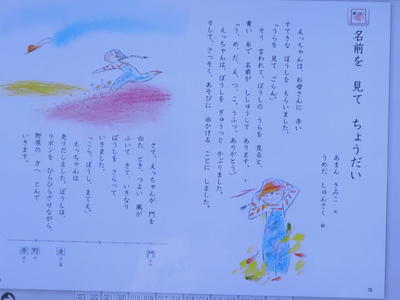 名前を 見て ちょうだい
あまん きみこ 文
うめだ しゅんさく 絵
えっちゃんは、お母さんに 赤い
すてきな ぼうしを もらいました。
「うらを 見て ごらん。」
そう 言われて、ぼうしの うらを 見ると、
青い 糸で 名前が ししゅうして あります。
「う、め、だ、え、つ、こ。うふっ。ありがとう。」
えっちゃんは、ぼうしを ぎゅうっと かぶりました。
そして、さっそく、あそびに 出かける ことに しました。
さて、えっちゃんが 門を
出た とき、つよい 風が
ふいて きて、いきなり
ぼうしを さらって
いきました。
「こら、ぼうし、まてえ。」
えっちゃんは
走りだしました。ぼうしは、
リボンを ひらひらさせながら、
野原の 方へ とんで
いきます。
門
走
野
原